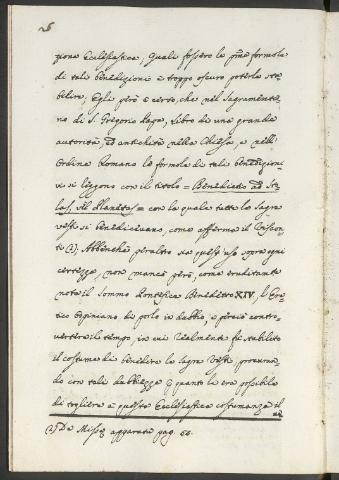 zione Ecclesiastica, Quali fossero le pme formole
di tali Benedizioni è troppo oscuro poterlo sta-
bilire; Egli però è certo, che nel Sagramenta-
rio di S. Gregorio Papa, Libro di una grande
autorità, ed antichità nella Chiesa, e nell'
Ordine Romano le formole di tali Benedizio-
ni si leggono col titolo = Benedictio ad Sto-
las, vel Planetas = con la quale tutte le Sagre
vesti si benedicevano, come afferma il Viscon-
ti (2). Abbenchè peraltro sia quest'uso sopra ogni
certezza, non manca però, come eruditamte
nota il Sommo Pontefice Benedetto XIV, l'Ere-
tico Ospiniano di porlo in dubbio, e perciò contro-
vertere il tempo, in cui realmente fu stabilito
il costume di benedire le Sagre Vesti procuran-
do con tali dubbiezze quanto li era possibile
di togliere a questa Ecclesiastica costumanza il
(2) De Missæ apparatu pag. 66.